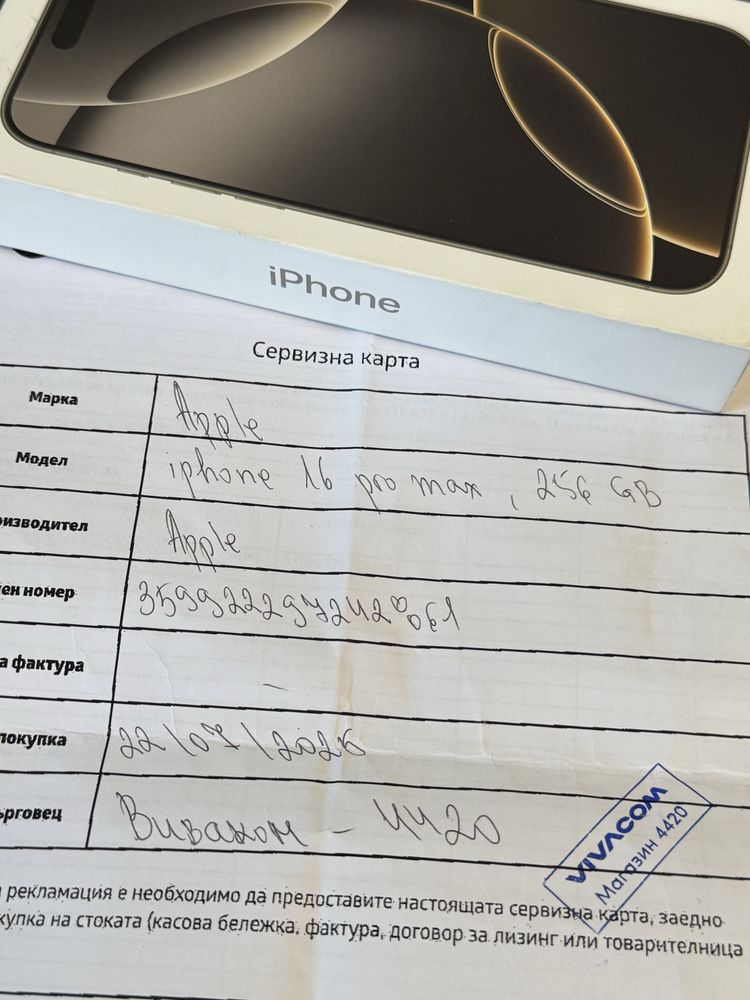 iPhone
Сервизна карта
Марка Apple
Модел iphone 16 pro max, 256 GB
оизводител Apple
ен номер
а фактура -
покупка 22/07/2026
ърговец Виваком - 4420
VIVACOM
Магазин 4420
рекламация е необходимо да предоставите настоящата сервизна карта, заедно
купка на стоката (касова бележка, фактура, договор за лизинг или товарителница